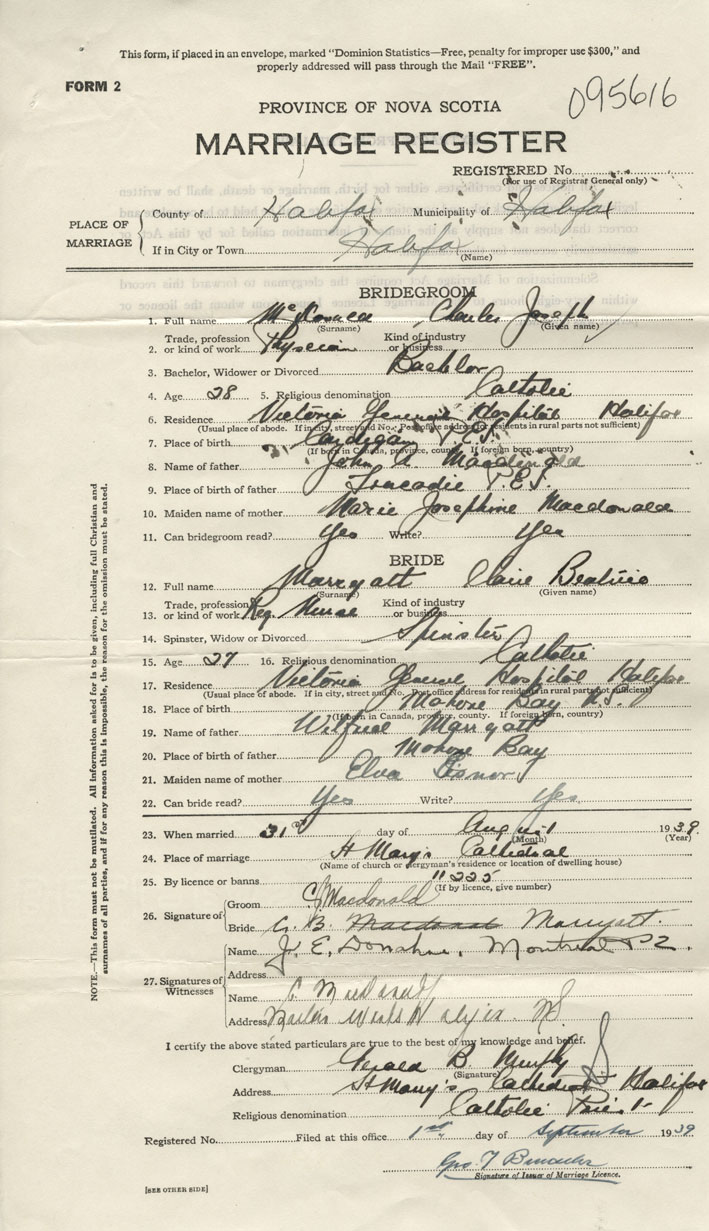 This form, if placed in an envelope, marked "Dominion Statistics—Free, penalty for improper use $300," and
properly addressed will pass through the Mail "FREE".
FORM 2
095616
PROVINCE OF NOVA SCOTIA
MARRIAGE REGISTER
REGISTERED No.
(For use of Registrar General only)
PLACE OF MARRIAGE
County of Halifax Municipality of Halifax
If in City or Town Halifax
(Name)
BRIDEGROOM
1. Full name McDonald Charles Joseph
(Surname) (Given name)
2. Trade, profession or kind of work Physician Kind of industry or business
3. Bachelor, Widower or Divorced Bachelor
4. Age 28 5. Religious denomination Catholic
6. Residence Victoria General Hospital Halifax
(Usual place of abode. If in city, street and No. Post office address for residents in rural parts not sufficient)
7. Place of birth Cardigan P.E.I.
(If born in Canada, province, county. If foreign born, country)
8. Name of father John A Macdonald
9. Place of birth of father Tracadie P.E.I.
10. Maiden name of mother Marie Josephine Macdonald
11. Can bridegroom read? Yes Write? Yes
BRIDE
12. Full name Marryatt Claire Beatrice
(Surname) (Given name)
13. Trade, profession or kind of work Reg. Nurse Kind of industry or business
14. Spinster, Widow or Divorced Spinster
15. Age 27 16. Religious denomination Catholic
17. Residence Victoria General Hospital Halifax
(Usual place of abode. If in city, street and No. Post office address for residents in rural parts not sufficient)
18. Place of birth Mahone Bay N.S.
(If born in Canada, province, county. If foreign born, country)
19. Name of father Wilfred Marryatt
20. Place of birth of father Mahone Bay
21. Maiden name of mother Elva
22. Can bride read? Yes Write? Yes
23. When married 31st day of August 1939.
(Month) (Year)
24. Place of marriage St Mary's Cathedral
(Name of church or clergyman's residence or location of dwelling house)
25. By licence or banns
(If by licence, give number)
26. Signature of
Groom CJ Macdonald
Bride C. B. Marryatt.
27. Signatures of Witnesses
Name J. E. Donahue, Montreal P.Q.
Address
Name C. MacDonald
Address Halifax N.S.
I certify the above stated particulars are true to the best of my knowledge and belief.
Clergyman Gerald B. Murphy
(Signature)
Address St Mary's Cathedral Halifax
Religious denomination Catholic Priest
Registered No. Filed at this office 1st day of September 1939
Geo. T
Signature of Issuer of Marriage Licence.
[SEE OTHER SIDE]
NOTE.—This form must not be mutilated. All information asked for is to be given, including full Christian and
surnames of all parties, and if for any reason this is impossible, the reason for the omission must be stated.